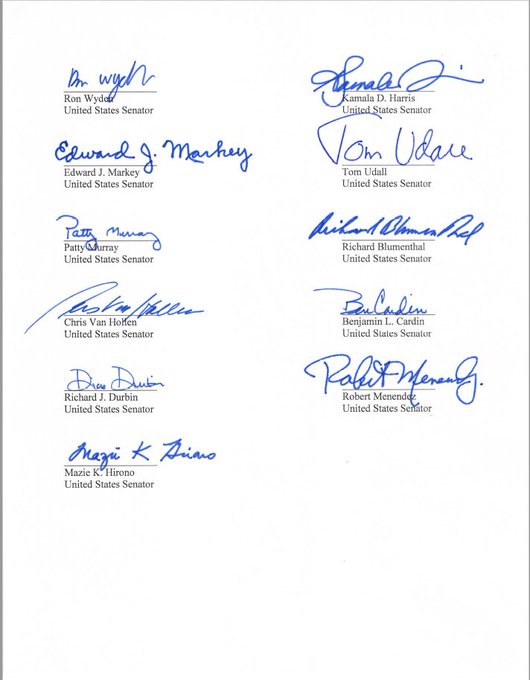 Ron Wyden
Ron Wyden
United States Senator
Kamala
Kamala D. Harris
United States Senator
Edward J. Markey
Edward J. Markey
United States Senator
Tom Udall
Tom Udall
United States Senator
Patty Murray
Patty Murray
United States Senator
Richard Blumenthal
Richard Blumenthal
United States Senator
Chris Van Hollen
United States Senator
Ben Cardin
Benjamin L. Cardin
United States Senator
Dick Durbin
Richard J. Durbin
United States Senator
Robert Menendez
Robert Menendez
United States Senator
Mazie K Hirono
Mazie K. Hirono
United States Senator